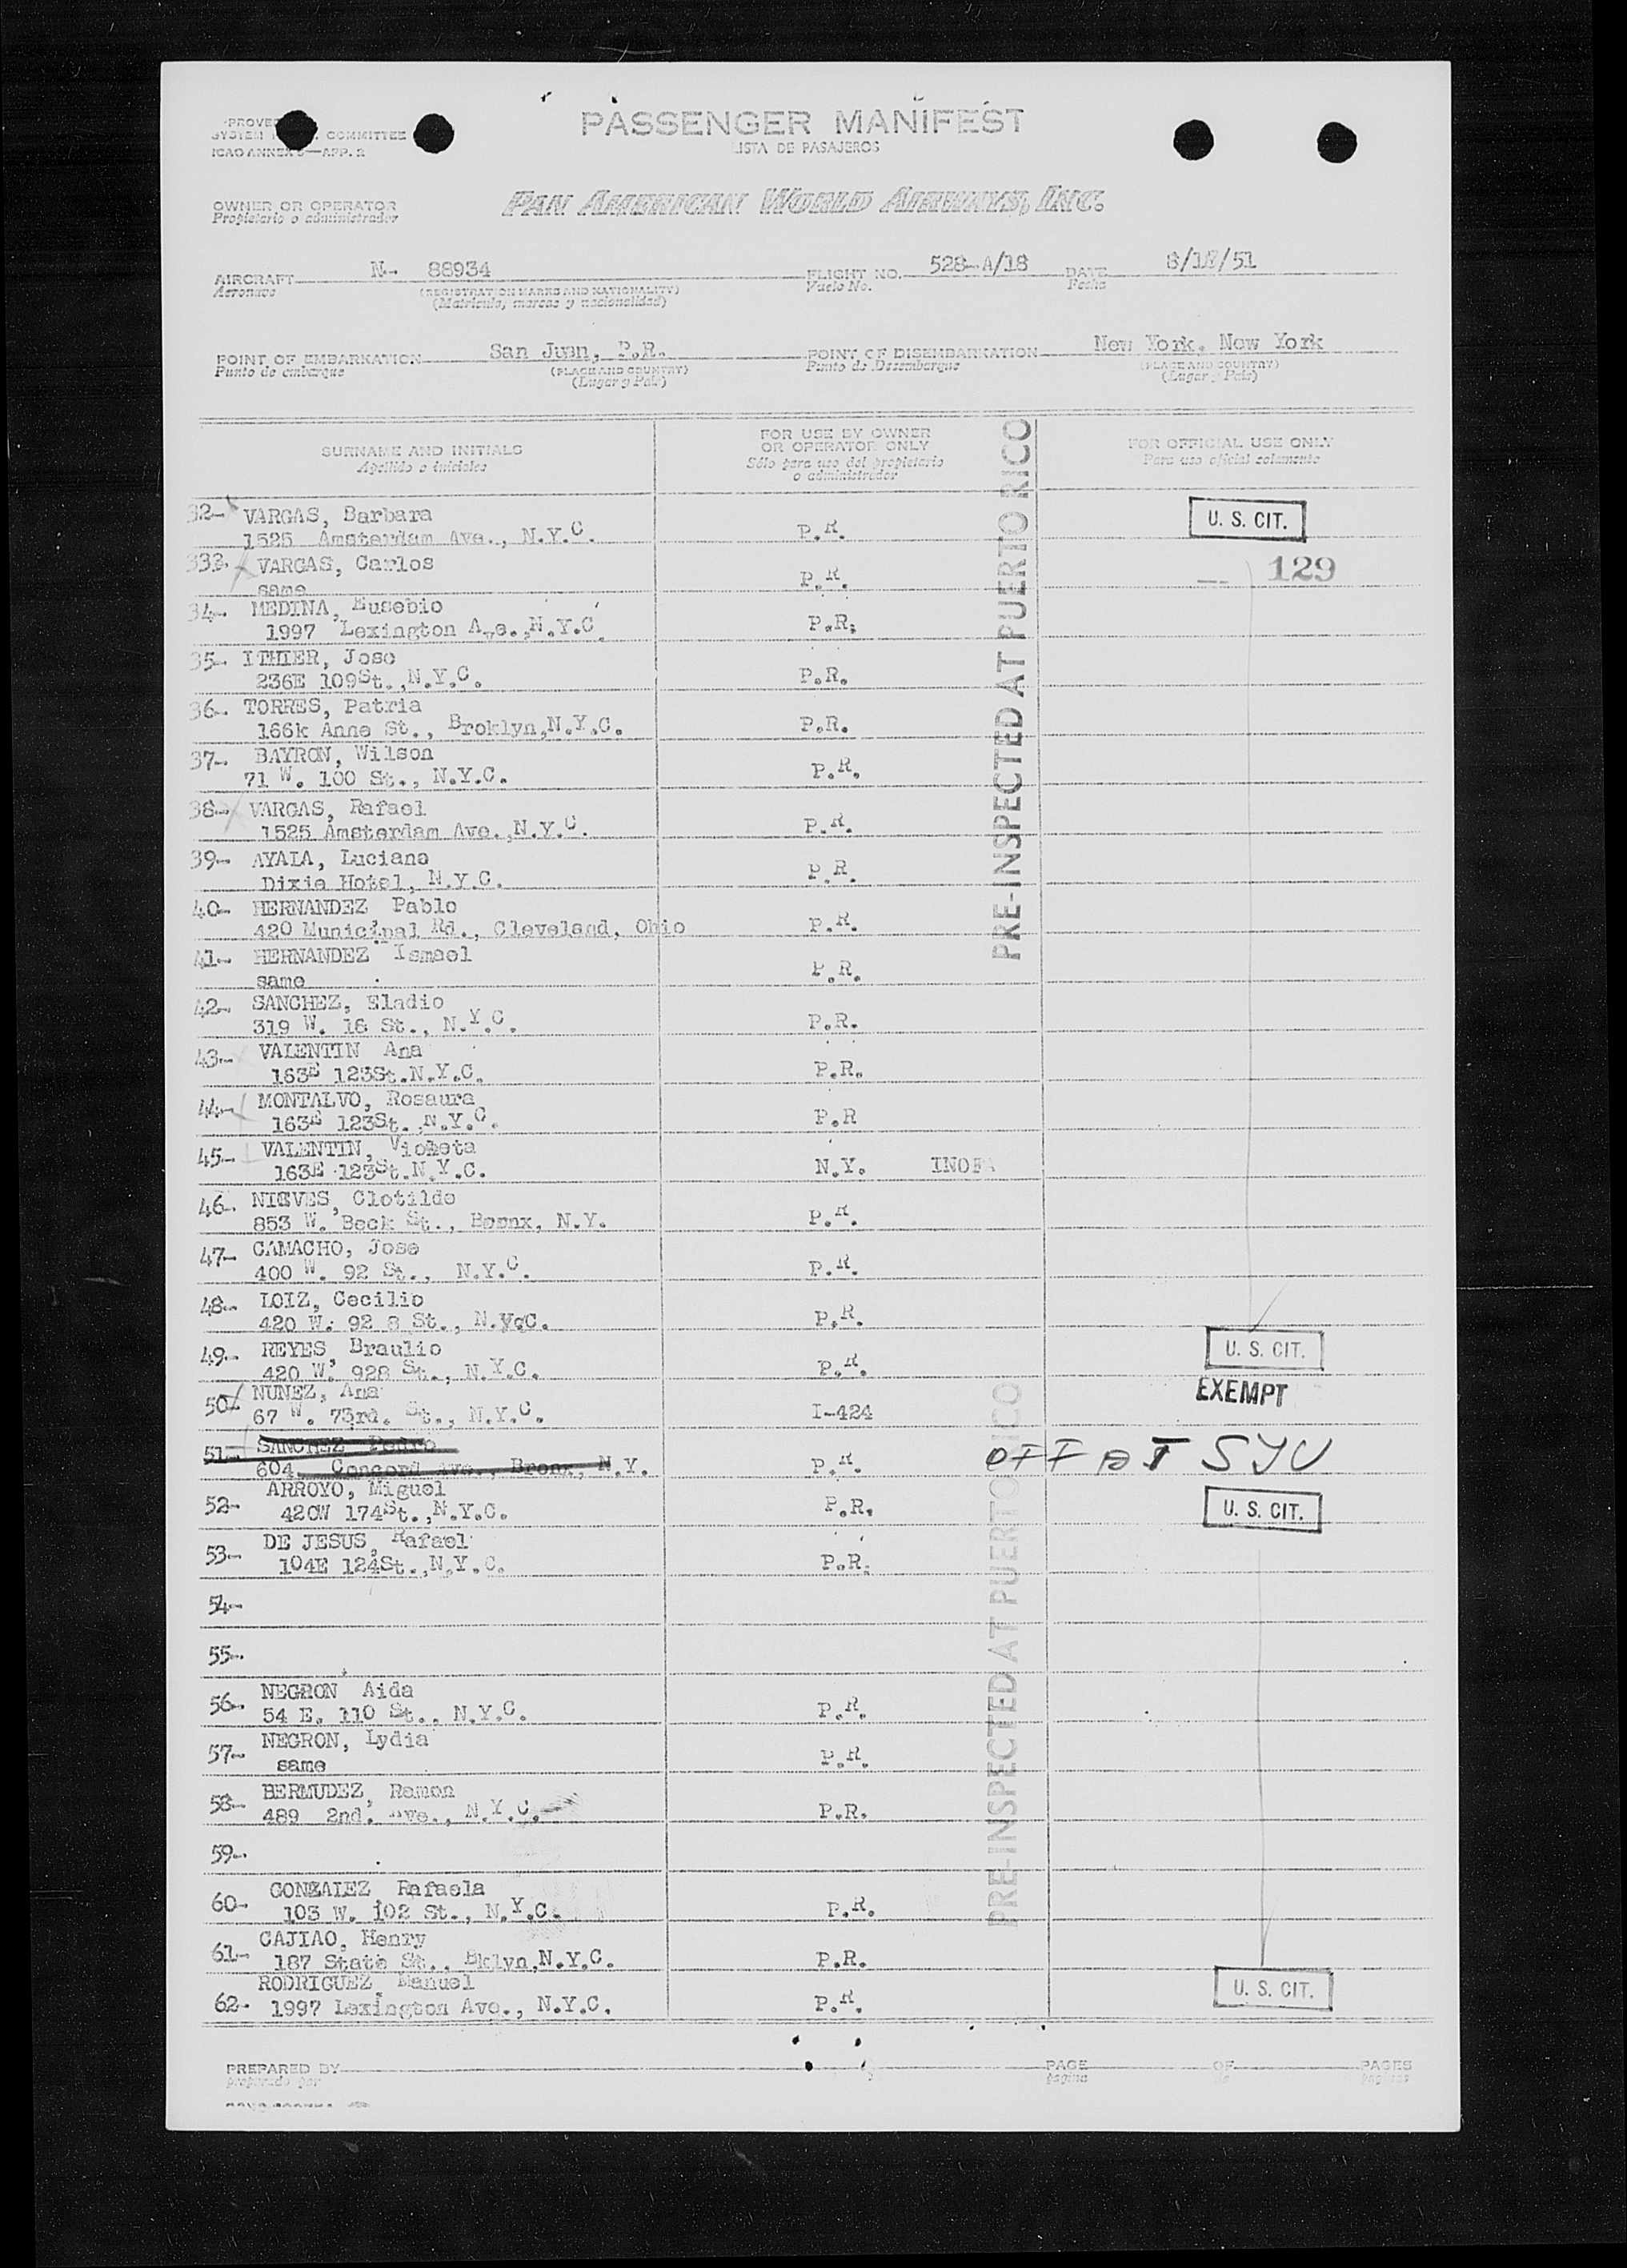 PASSENGER MANIFEST
LISTA DE PASAJEROS
COMMITTEE
ICAO ANNEX 9—APP. 2
OWNER OR OPERATOR
Propietario o administrador
PAN AMERICAN WORLD AIRWAYS, INC.
AIRCRAFT N- 88934 FLIGHT NO. 528-A/18 DATE
Aeronave (REGISTRATION MARKS AND NATIONALITY) Vuelo No. Fecha
(Matricula, marcas y nacionalidad)
POINT OF EMBARKATION San Juan, P.R. POINT OF DISEMBARKATION New York, New York
Punto de embarque (PLACE AND COUNTRY) Punto de Desembarque (PLACE AND COUNTRY)
(Lugar y País) (Lugar y País)
SURNAME AND INITIALS FOR USE BY OWNER OR OPERATOR ONLY FOR OFFICIAL USE ONLY
Apellido e iniciales Sólo para uso del propietario o administrador Para uso oficial solamente
PRE-INSPECTED AT PUERTO RICO
32- VARGAS, Barbara U. S. CIT.
1525 Amsterdam Ave., N.Y.C. P.R.
33 VARGAS, Carlos 129
same P.R.
34- MEDINA, Eusebio
1997 Lexington Ave., N.Y.C. P.R.
35- ITHIER, Jose
236E 109St., N.Y.C. P.R.
36- TORRES, Patria
166k Anne St., Broklyn, N.Y.C. P.R.
37- BAYRON, Wilson
71 W. 100 St., N.Y.C. P.R.
38- VARGAS, Rafael
1525 Amsterdam Ave., N.Y.C. P.R.
39- AYALA, Luciano
Dixie Hotel, N.Y.C. P.R.
40- HERNANDEZ, Pablo
420 Municipal Rd., Cleveland, Ohio P.R.
41- HERNANDEZ Ismael
same P.R.
42- SANCHEZ, Eladio
319 W. 18 St., N.Y.C. P.R.
43- VALENTIN Ana
163E 123St. N.Y.C. P.R.
44- MONTALVO, Rosaura
163E 123St., N.Y.C. P.R
45- VALENTIN, Violeta
163E 123St. N.Y.C. N.Y. INOF
46- NIEVES, Clotilde
853 W. Beck St., Bronx, N.Y. P.R.
47- CAMACHO, Jose
400 W. 92 St., N.Y.C. P.R.
48- LOIZ, Cecilio
420 W. 92 8 St., N.Y.C. P.R.
49- REYES, Braulio U. S. CIT.
420 W. 928 St., N.Y.C. P.R.
50- NUNEZ, Ana EXEMPT
67 W. 73rd. St., N.Y.C. I-424
51- SANCHEZ Pedro OFF AT SJU
604 Concord Ave., Bronx, N.Y. P.R.
PRE-INSPECTED AT PUERTO RICO
52- ARROYO, Miguel U. S. CIT.
420W 174St., N.Y.C. P.R.
53- DE JESUS, Rafael
104E 124St., N.Y.C. P.R.
54-
55-
56- NEGRON Aida
54 E. 110 St., N.Y.C. P.R.
57- NEGRON, Lydia
same P.R.
58- BERMUDEZ, Ramon
489 2nd. Ave., N.Y.C. P.R.
59-
60- GONZALEZ, Rafaela
103 W. 102 St., N.Y.C. P.R.
61- CAJIAO, Henry
187 State St., Bklyn, N.Y.C. P.R.
RODRIGUEZ, Manuel U. S. CIT.
62- 1997 Lexington Ave., N.Y.C. P.R.
PREPARED BY PAGE OF PAGES
preparado por página de páginas